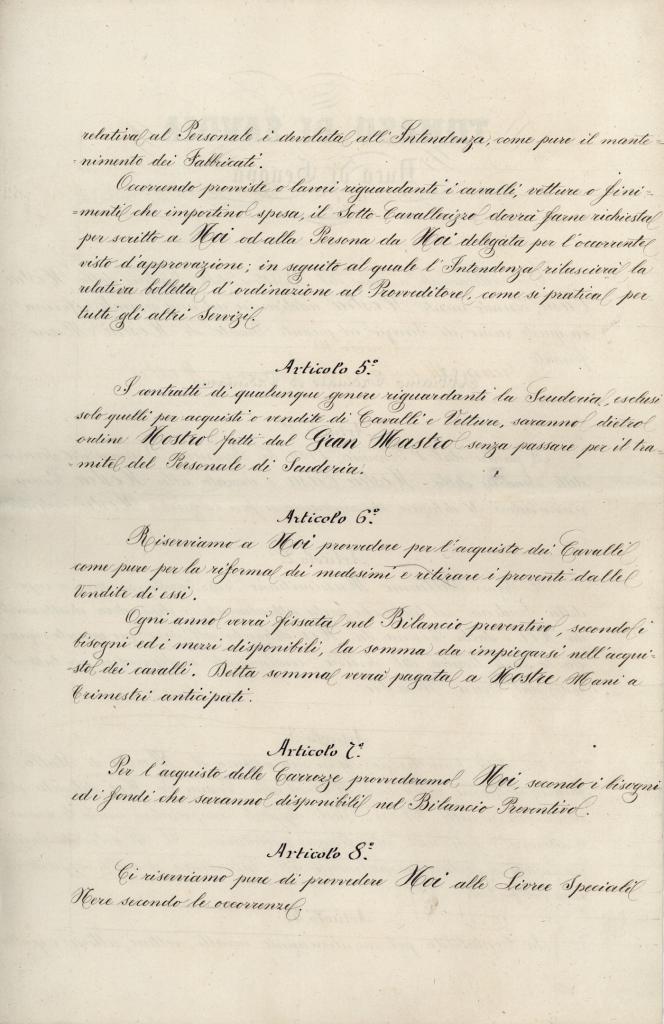 relativa al Personale è devoluta all'Intendenza, come pure il mante=
=nimento dei Fabbricati.
Occorrendo provviste o lavori riguardanti i cavalli, vetture o fini=
=menti che importino spesa, il Sotto-Cavallerizzo dovrà farne richiesta
per scritto a Noi od alla Persona da Noi delegata per l'occorrente
visto d'approvazione; in seguito al quale l'Intendenza rilascierà la
relativa bolletta d'ordinazione al Provveditore, come si pratica per
tutti gli altri Servizi.
Articolo 5.º
I contratti di qualunque genere riguardanti la Scuderia, esclusi
solo quelli per acquisti o vendite di Cavalli e Vetture, saranno dietro
ordine Nostro fatti dal Gran Mastro senza passare per il tra=
=mite del Personale di Scuderia.
Articolo 6.º
Riserviamo a Noi provvedere per l'acquisto dei Cavalli
come pure per la riforma dei medesimi e ritirare i proventi dalle
Vendite di essi.
Ogni anno verrà fissata nel Bilancio preventivo, secondo i
bisogni ed i mezzi disponibili, la somma da impiegarsi nell'acqui=
=sto dei cavalli. Detta somma verrà pagata a Nostre Mani a
Trimestri anticipati.
Articolo 7.º
Per l'acquisto delle Carrozze provvederemo Noi, secondo i bisogni
ed i fondi che saranno disponibili nel Bilancio Preventivo.
Articolo 8.º
Ci riserviamo pure di provvedere Noi alle Livree Speciali
Nere secondo le occorrenze.